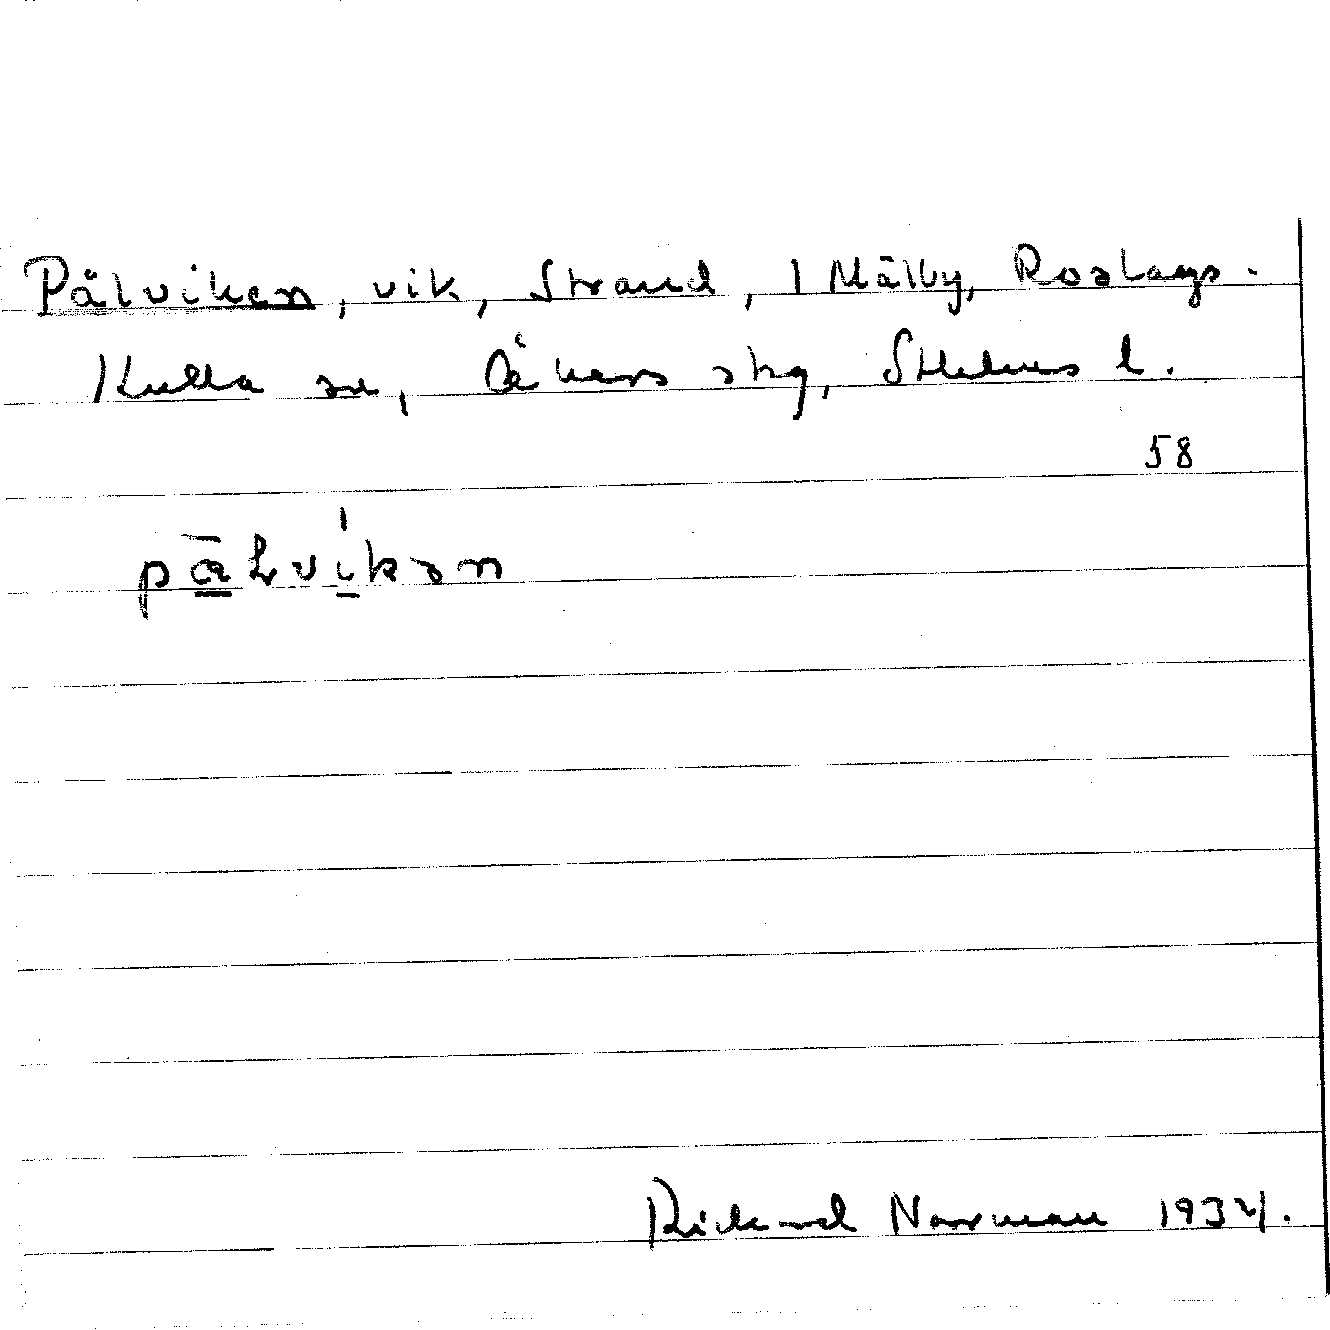 Pälviken, vik, Strand, 1 Mälby, Roslags.
Kulla sn, Åkers skg, Sthlms l.
58
pälviken
Rickard Norman 1934.